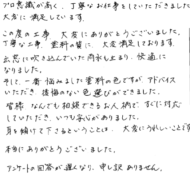 プロ意識が高く、丁寧なお仕事をしていただきました
大変に満足しています。
この度の工事 大変にありがとうございました。
丁寧な工事、塗料の質に、大変満足しております。
出窓に吹き込んでいた雨水も止まり、快適に
なりました。
そして、一番悩みました塗料の色ですが、アドバイス
いただき、後悔のない色選びができました。
皆様 なんでも相談できるお人柄で すぐに対応
していただき、いつも安心がありました。
耳を傾けて下さるということは、大変にうれしいことです
本当にありがとうございました。
アンケートの回答が遅くなり、申し訳ありません。